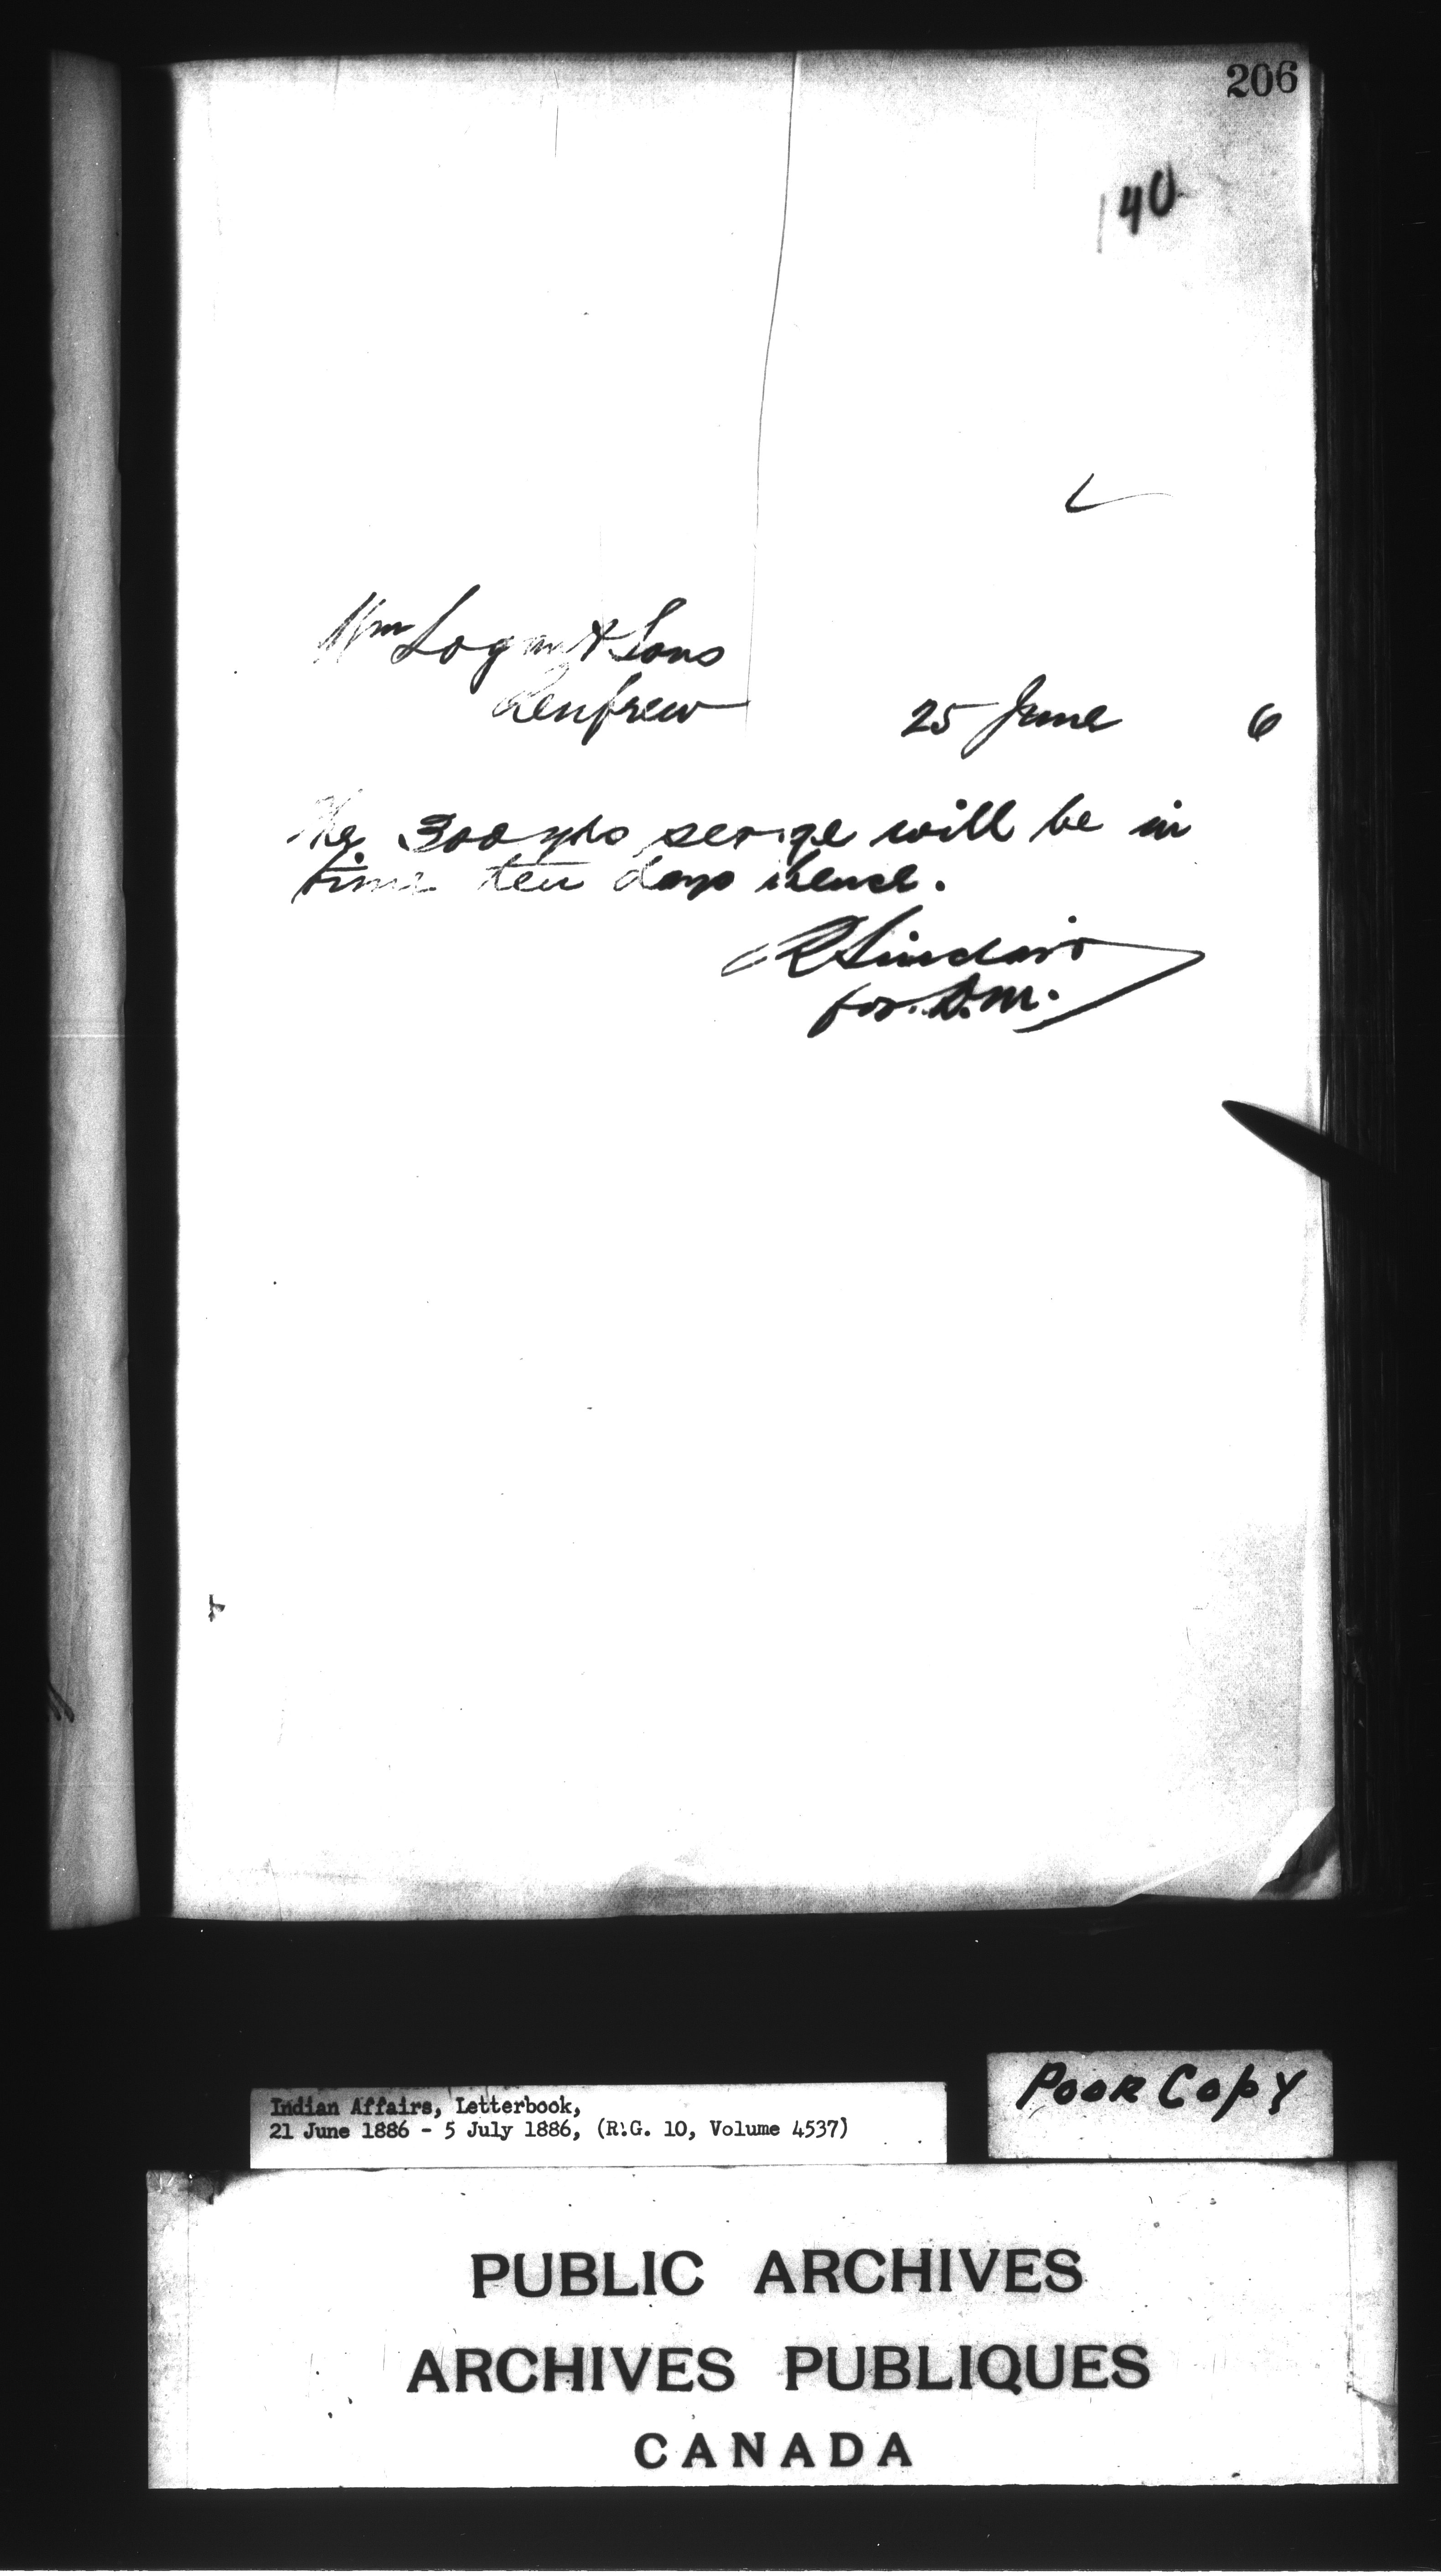 206
140
Wm Logan & Sons
Renfrew
25 June 6
The 300 yds serge will be in
time ten days hence.
R Sinclair
for D.M.
Indian Affairs, Letterbook,
21 June 1886 - 5 July 1886, (R.G. 10, Volume 4537)
POOR COPY
PUBLIC ARCHIVES
ARCHIVES PUBLIQUES
CANADA